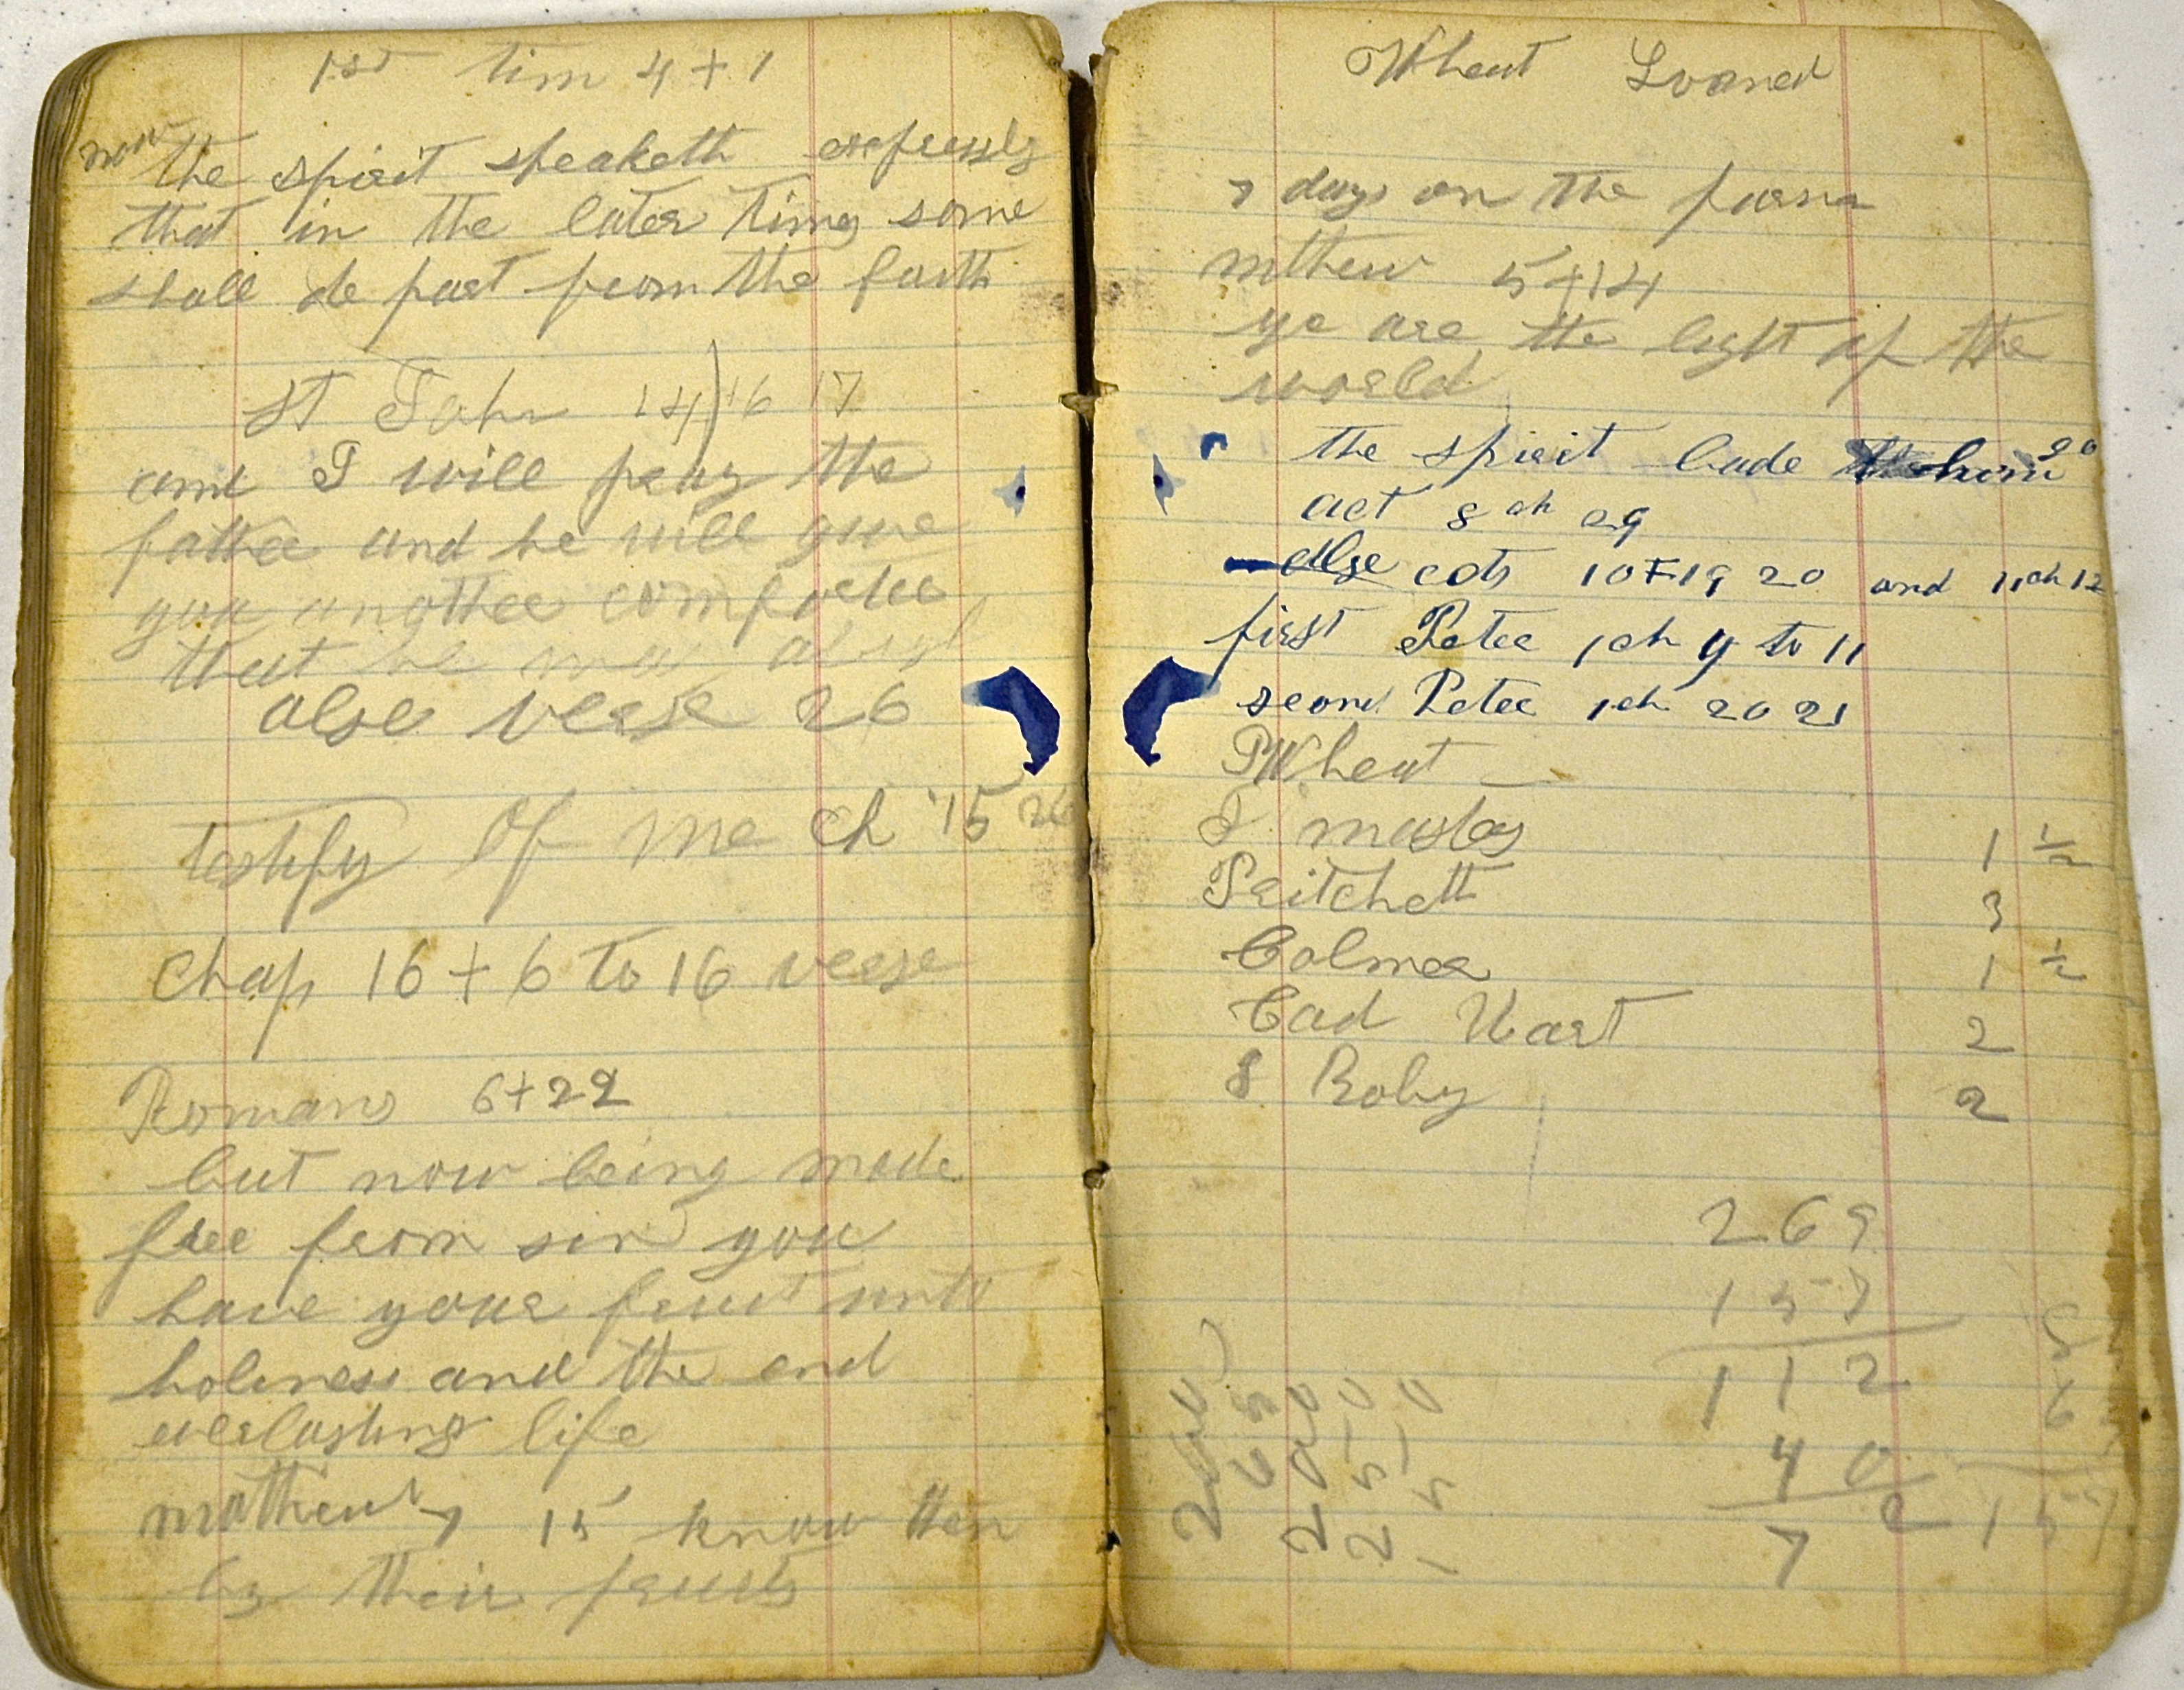 1st tim 4 + 1
now the spirit speaketh expressly
that in the later times some
shall de part from the faith
St John 14) 16 17
and I will pray the
father and he will give
you another comforter
that he may
also verse 26
testify of me ch 15 26
Chap 16 + 6 to 16 verse
Romans 6+22
but now being made
free from sin you
have your fruit unto
holiness and the end
everlasting life
mathew 7 15 know then
by their fruits
Wheat Loaned
7 days on the farm
mthew 5+14
ye are the light of the
world
the spirit bade him go
act 8 ch 29
also cots 10+19 20 and 11 ch 12
first Peter 1 ch 9 to 11
second Peter 1 ch 20 21
Wheat
T masters 1 1/2
Pritchett 3
Colmer 1 1/2
Cad Hart 2
S Roby 2
269
157
112
40
72
157